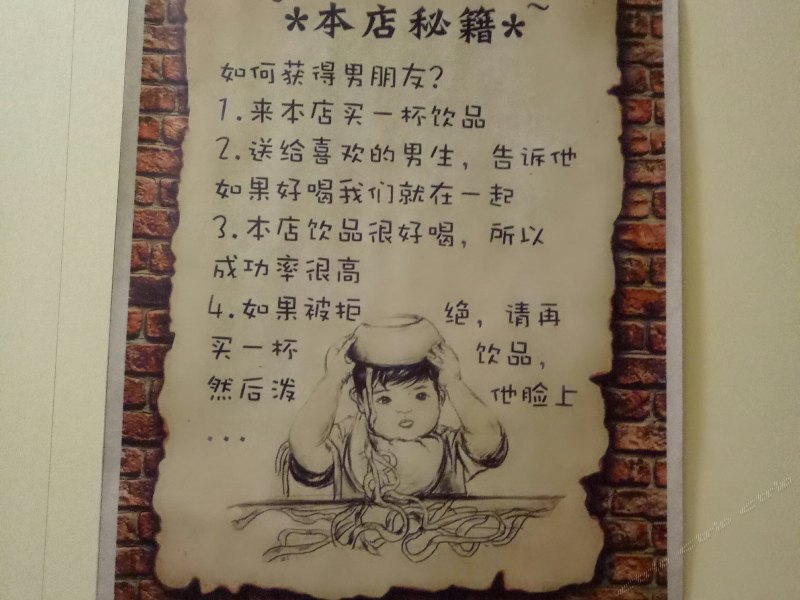 *本店秘籍*~
如何获得男朋友?
1.来本店买一杯饮品
2.送给喜欢的男生，告诉他
如果好喝我们就在一起
3.本店饮品很好喝，所以
成功率很高
4.如果被拒绝，请再
买一杯饮品，
然后泼他脸上
...